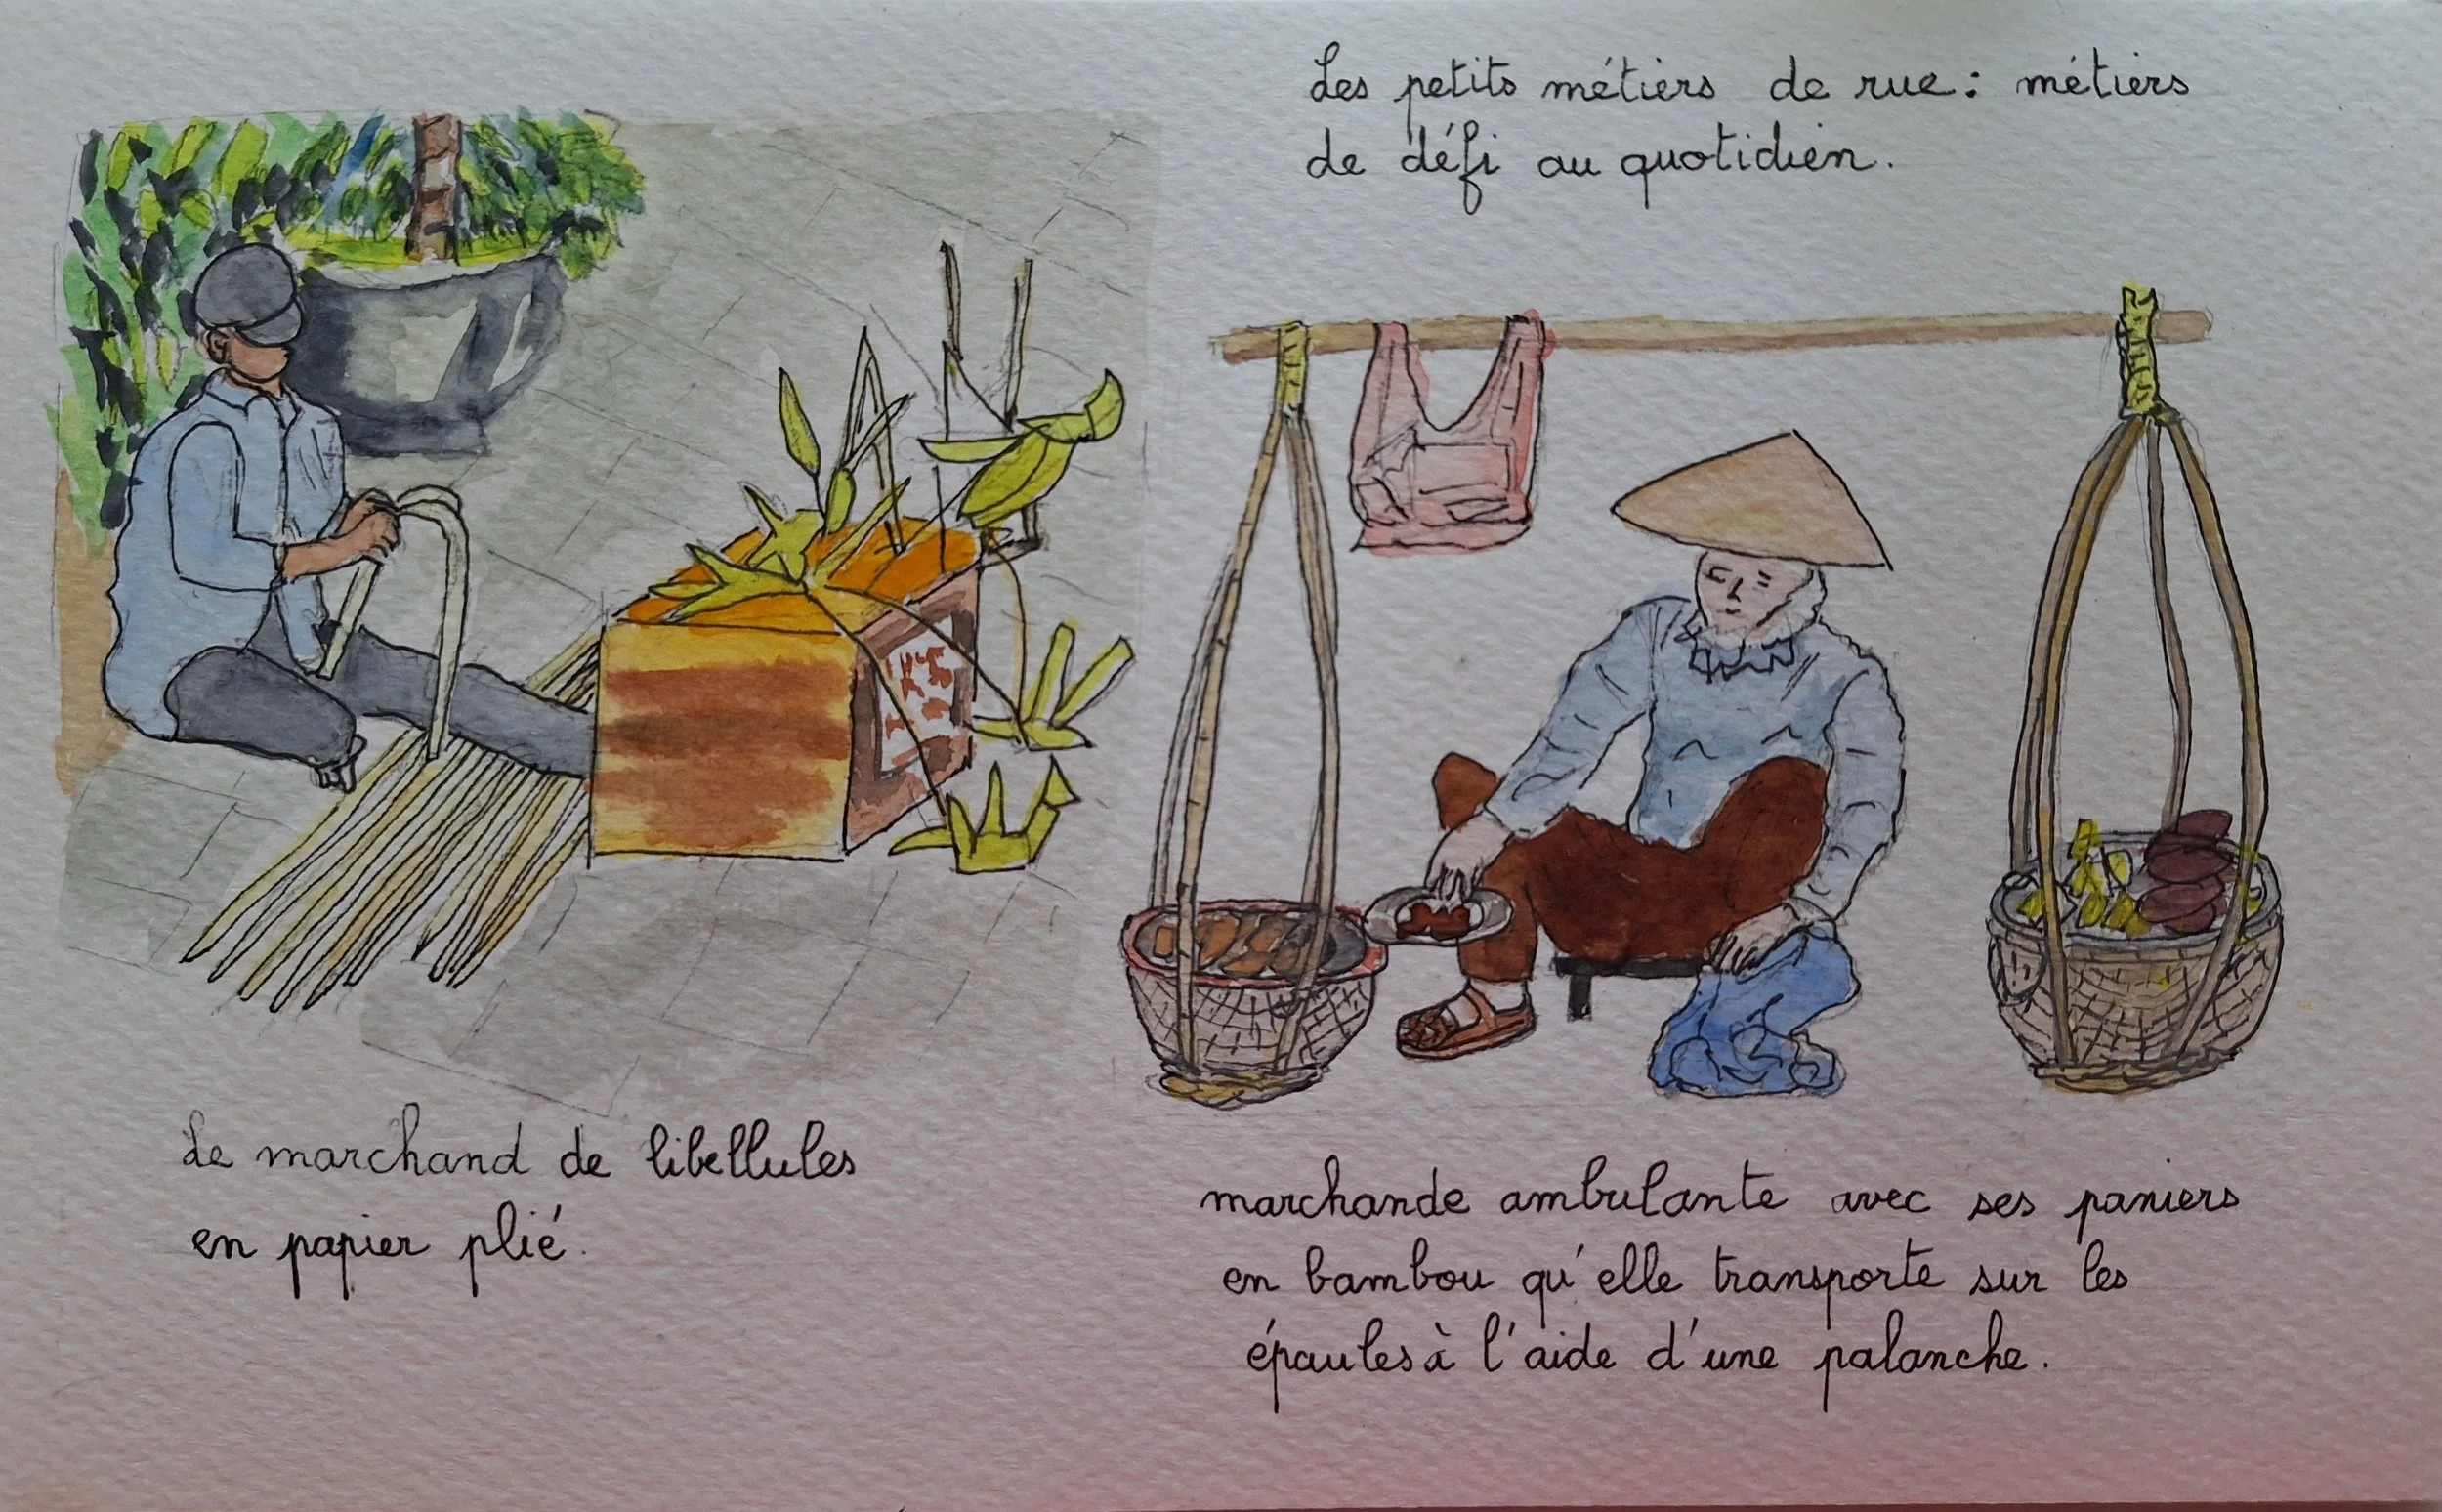 Les petits métiers de rue : métiers
de défi au quotidien.
Le marchand de libellules
en papier plié.
marchande ambulante avec ses paniers
en bambou qu'elle transporte sur les
épaules à l'aide d'une palanche.